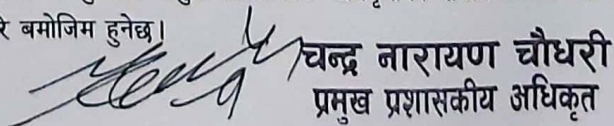 रे बमोजिम हुनेछ।
चन्द्र नारायण चौधरी
प्रमुख प्रशासकीय अधिकृत